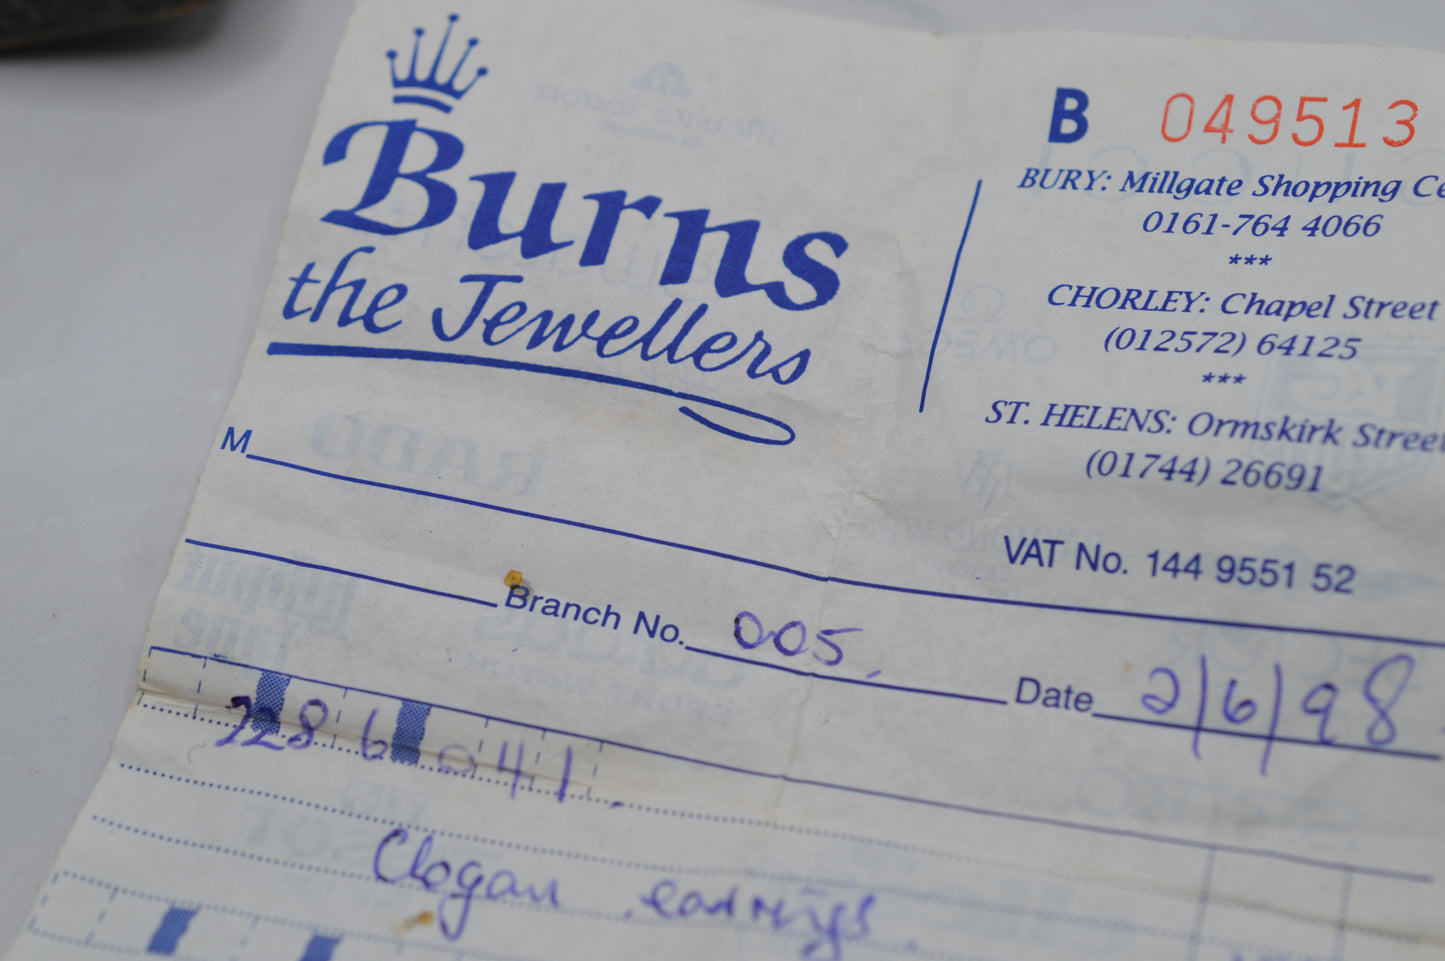 Burns
the Jewellers
B 049513
BURY: Millgate Shopping Ce
0161-764 4066
***
CHORLEY: Chapel Street
(012572) 64125
***
ST. HELENS: Ormskirk Street
(01744) 26691
VAT No. 144 9551 52
M
Branch No. 005. Date 2/6/98
728 6 041.
Clogau earrings.
RADO
OMEGA